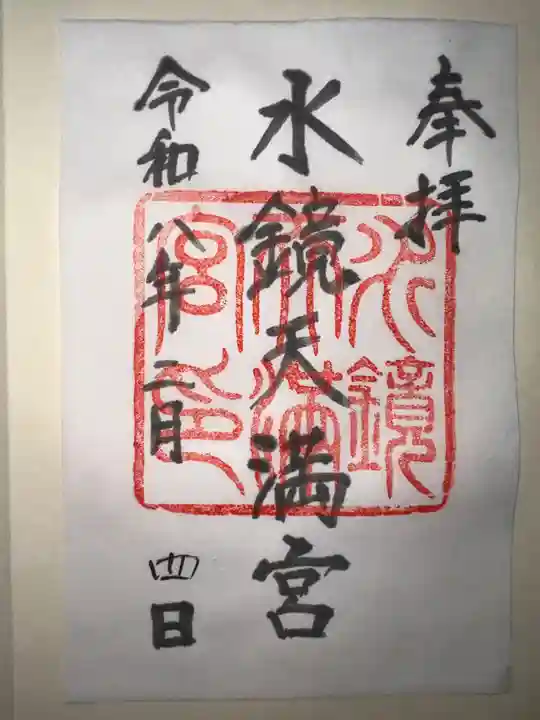 奉拝
水鏡天満宮
令和八年二月四日
水鏡
天満
宮印